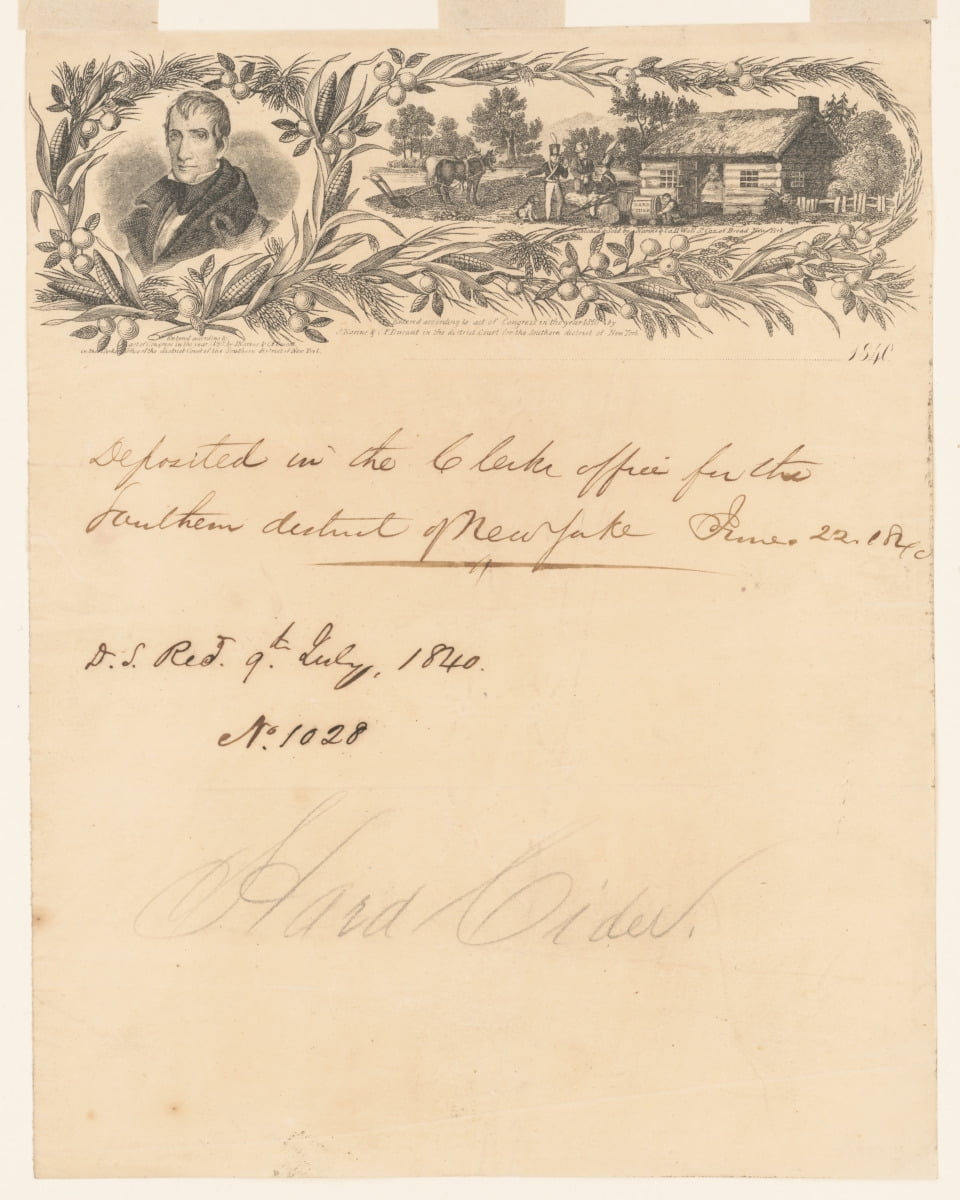 HARD CIDER
Published & Sold by J. Narine & Co. 11 Wall St. Cor. of Broad New York
Entered according to act of Congress in the year 1840 by
J. Narine & C. P. Durant in the district Court for the Southern district of New York
Entered according to
act of Congress in the year 1840 by J. Narine & C. P. Durant
in the Clerks Office of the district Court of the Southern district of New York.
1840
Deposited in the Clerks office for the
Southern district of New York June 22. 1840
D. S. Recd. 9th. July, 1840.
No. 1028
Hard Cider.